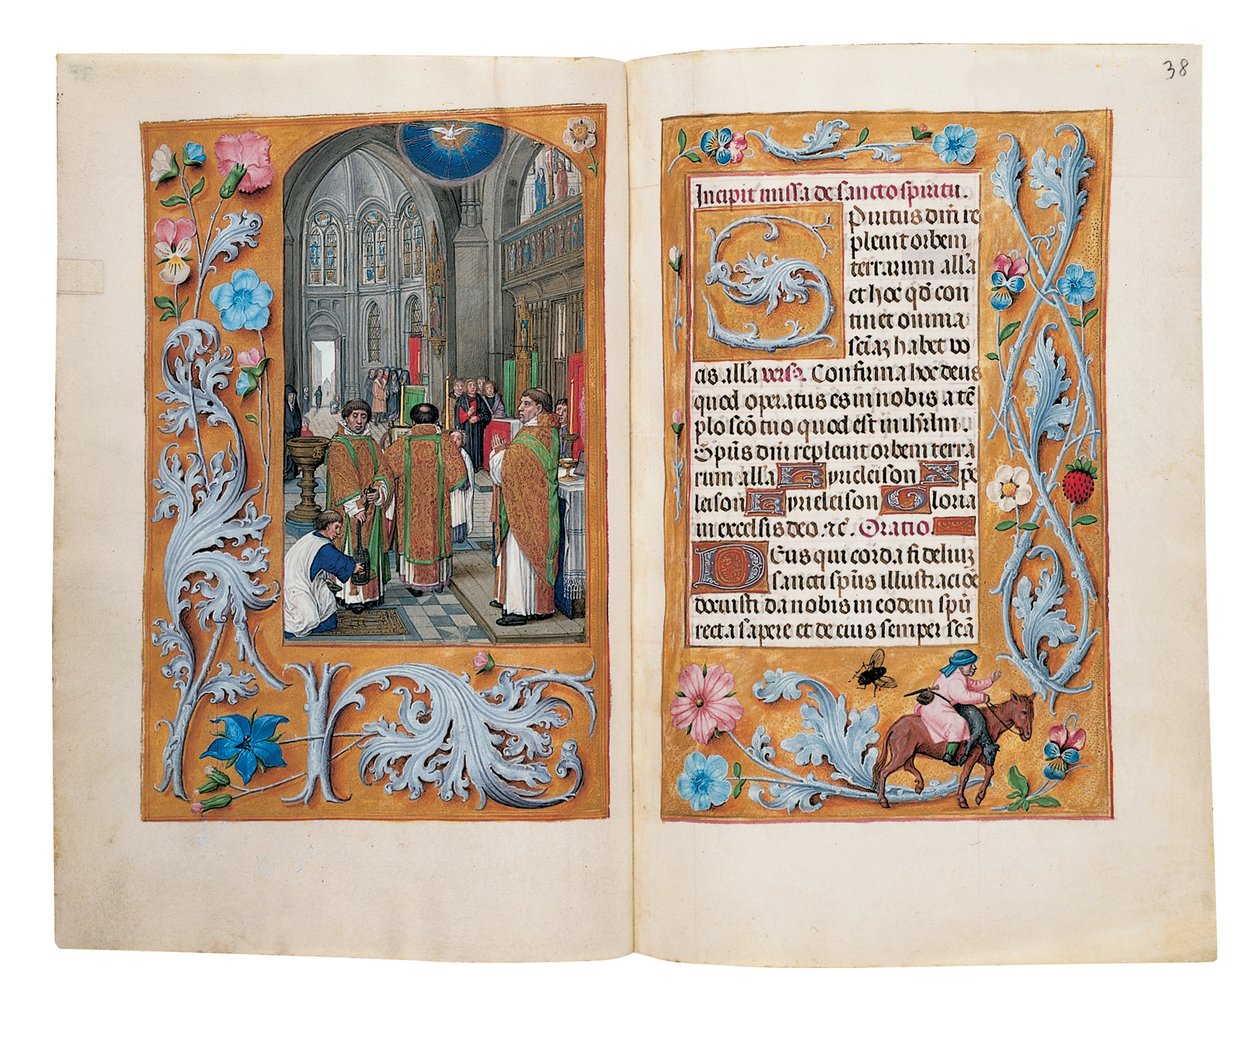 38
Incipit missa de sancto spiritu.
Spiritus dn̄i re
pleuit orbem
terrarum all'a
et hoc qd̄ con
tinet omnia
scīaꝫ habet vo
cis all'a vers9. Confirma hoc deus
quod operatus es in nobis a tē
plo scō tuo quod est in ihrl̄m.
Spūs dn̄i repleuit orbem terra
rum all'a Kyrieleison Xp̄e
leison Kyrieleison Gloria
in excelsis deo. ⁊c̄. Oratio
Deus qui corda fideliuꝫ
sancti spūs illustracōe
docuisti da nobis in eodem spū
recta sapere et de eius semper scā